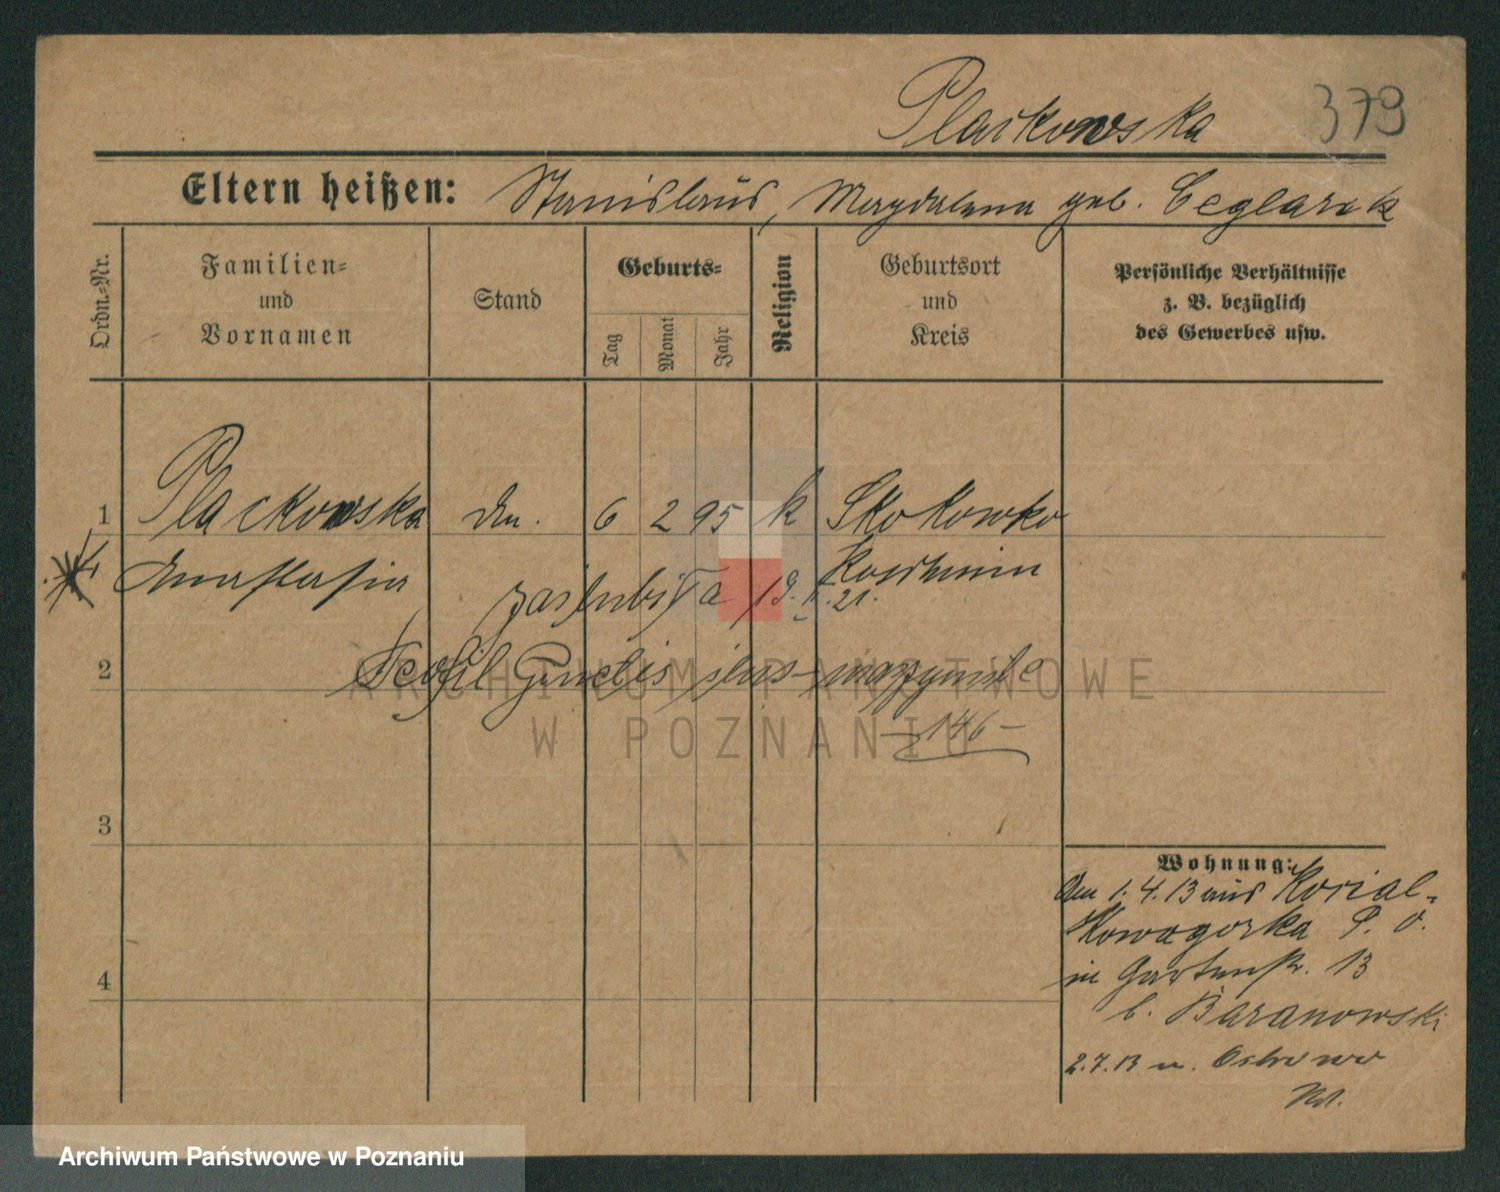 Plackowska 379
Eltern heißen: Stanislaus, Magdalena geb. Ceglarek
Ordn.-Nr.
Familien-
und
Vornamen
Stand
Geburts-
Tag
Monat
Jahr
Religion
Geburtsort
und
Kreis
Persönliche Verhältnisse
z. B. bezüglich
des Gewerbes usw.
1 Plackowska 6 2 95 k Skokowko
Anastasia
zaślubiła 19. 21.
2 Teofil
-146-
3
4
Wohnung:
1.4.13 aus
Nowagorka P. O.
in Gartenstr. 13
b. Baranowski
2.7.13 n. Ostrowo
ARCHIWUM PAŃSTWOWE
W POZNANIU
Archiwum Państwowe w Poznaniu